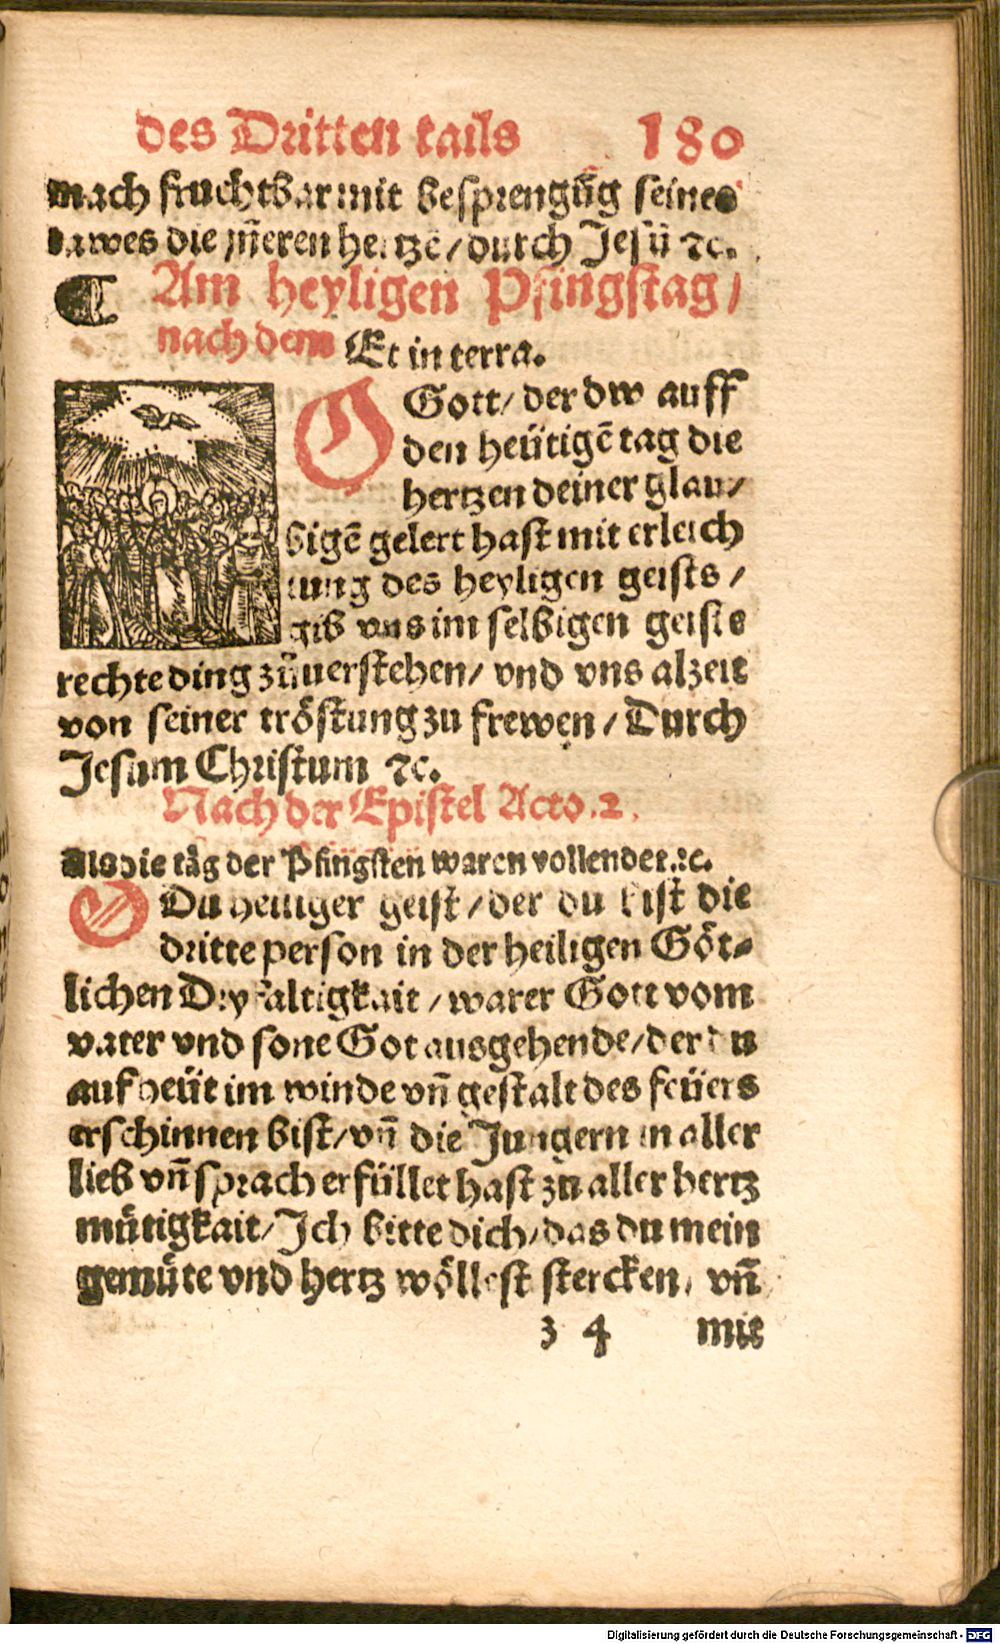 des Dritten tails 180
mach fruchtbar mit besprengũg seines
tawes die jñeren hertzẽ / durch Jesũ ⁊c.
¶ Am heyligen Pfingstag /
nach dem Et in terra.
O Gott / der dw auff
den heütigẽ tag die
hertzen deiner glau /
bigẽ gelert hast mit erleich
tung des heyligen geists /
gib vns im selbigen geiste
rechte ding zůuerstehen / vnd vns alzeit
von seiner tröstung zu frewen / Durch
Jesum Christum ⁊c.
Nach der Epistel Acto. 2.
Als die täg der Pfingsten waren vollendet. ⁊c.
O Du heiliger geist / der du bist die
dritte person in der heiligen Göt-
lichen Dryfaltigkait / warer Gott vom
vater vnd sone Got ausgehende / der du
auf heüt im winde vñ gestalt des feüers
erschinnen bist / vñ die Jungern in aller
lieb vñ sprach erfüllet hast zu aller hertz
mütigkait / Ich bitte dich / das du mein
gemüte vnd hertz wöllest stercken, vñ
z 4 mit
Digitalisierung gefördert durch die Deutsche Forschungsgemeinschaft - DFG